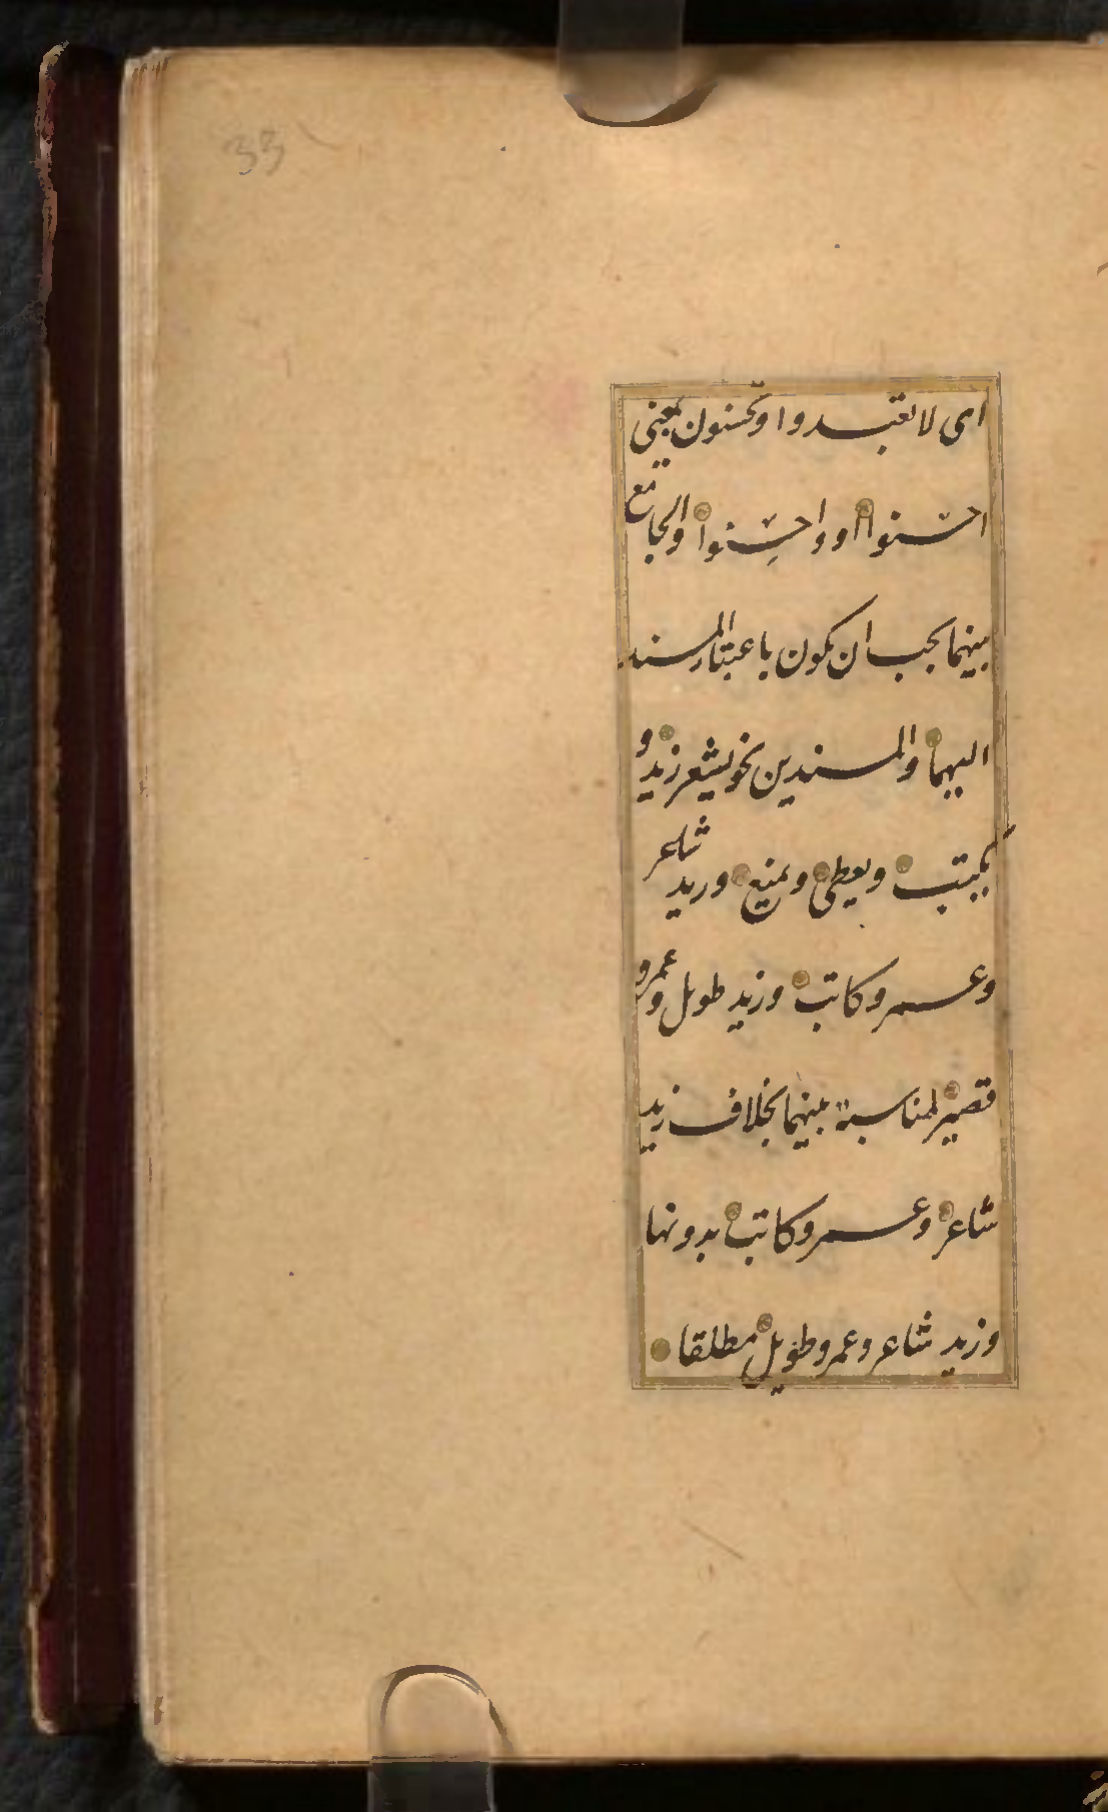 33
اى لا تعبدوا وتحسنون بمعنى
احسنوا او واحسنوا والجامع
بينهما يجب ان يكون باعتبار المسند
اليهما والمسندين نحو يشعر زيد و
يكتب ويعطى ويمنع وزيد شاعر
وعمرو كاتب وزيد طويل وعمرو
قصير لمناسبة بينهما بخلاف زيد
شاعر وعمرو كاتب بدونها
وزيد شاعر وعمرو طويل مطلقا